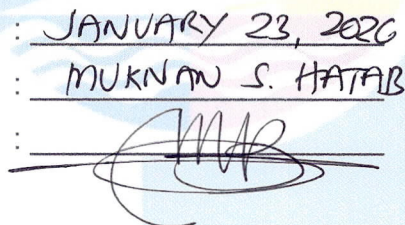 : JANUARY 23, 2026
: MUKNAN S. HATAB
: